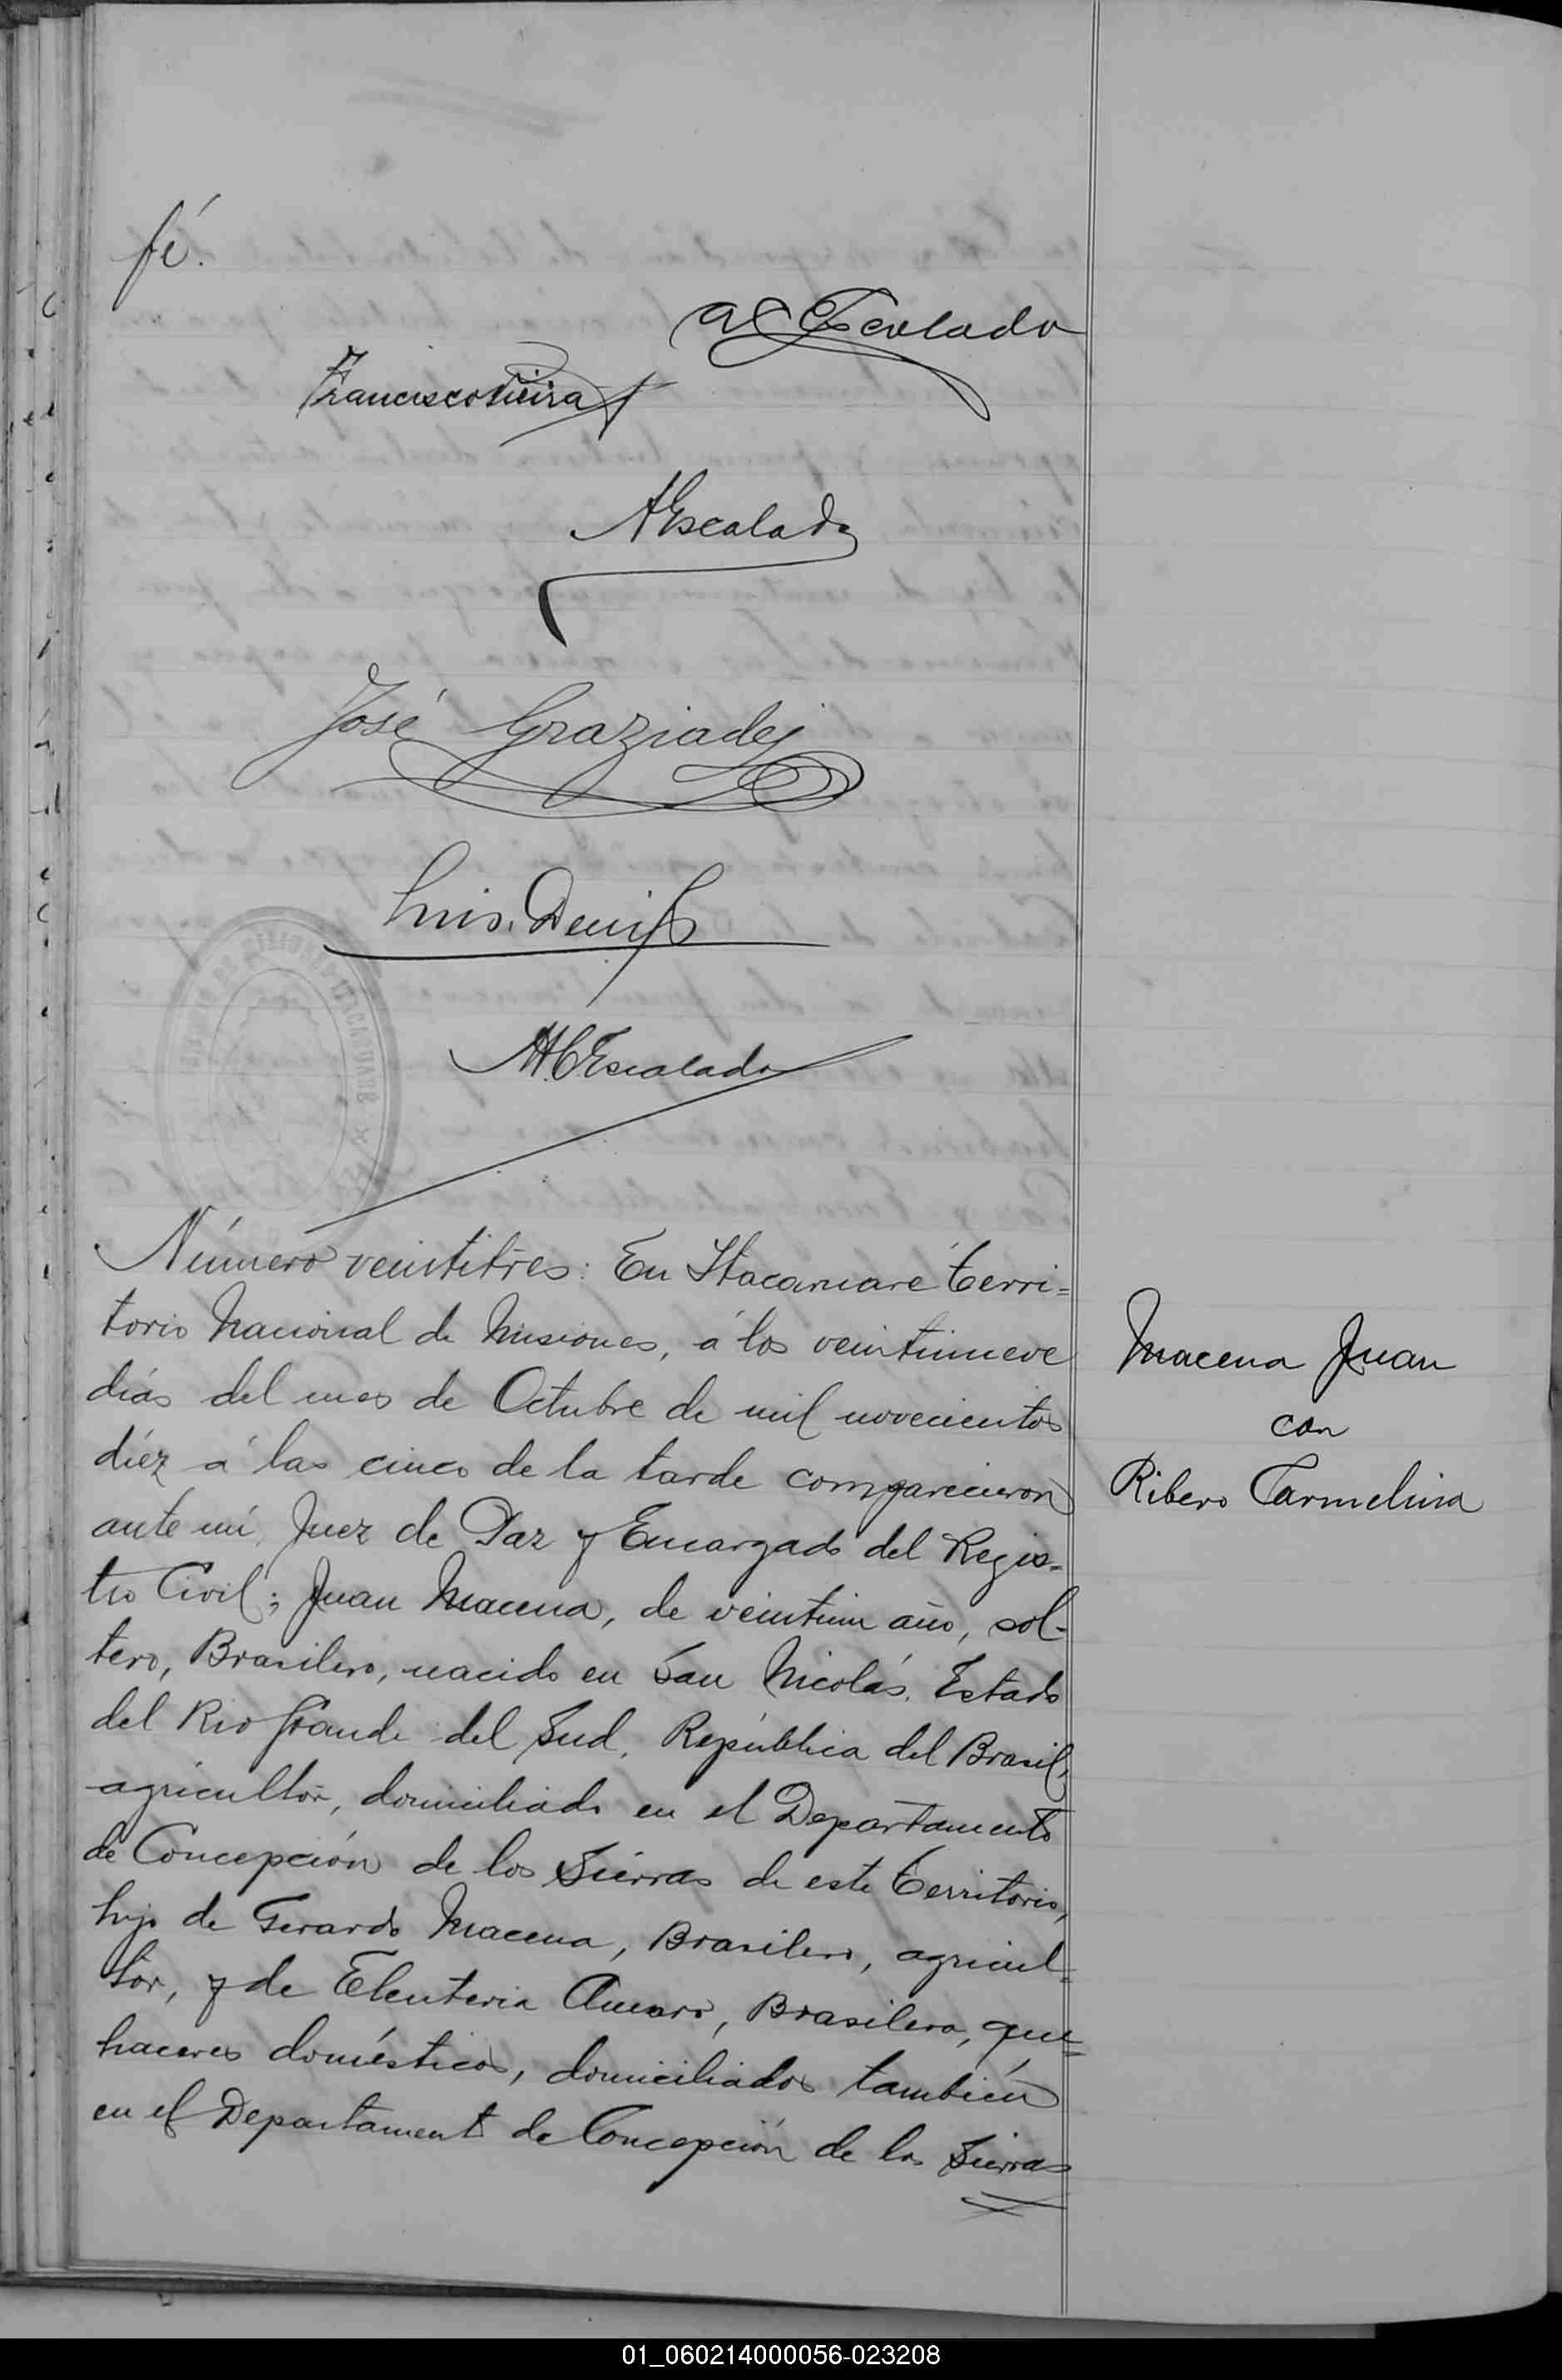 fé.
A Escalada
Francisco Vieira
A Escalada
José Graziadej
Luis Denis
A C Escalada
Número veintitres: En Itacaruaré Terri=
torio Nacional de Misiones, á los veintinueve
diás del mes de Octubre de mil novecientos
diéz á las cinco de la tarde comparecieron
ante mí, Juez de Paz y Encargado del Regis-
tro Civil; Juan Macena, de veintiun año, sol-
tero, Brasilero, nacido en San Nicolás. Estado
del Rio Grande del Sud, República del Brasil,
agricultor, domiciliado en el Departamento
de Concepción de las Sierras de este Territorio,
hijo de Gerardo Macena, Brasilero, agricul-
tor, y de Eleuteria Amaro, Brasilera, que=
haceres domésticos, domiciliados también
en el Departamento de Concepción de las Sierras
Macena Juan
con
Ribero Carmelina
01_060214000056-023208